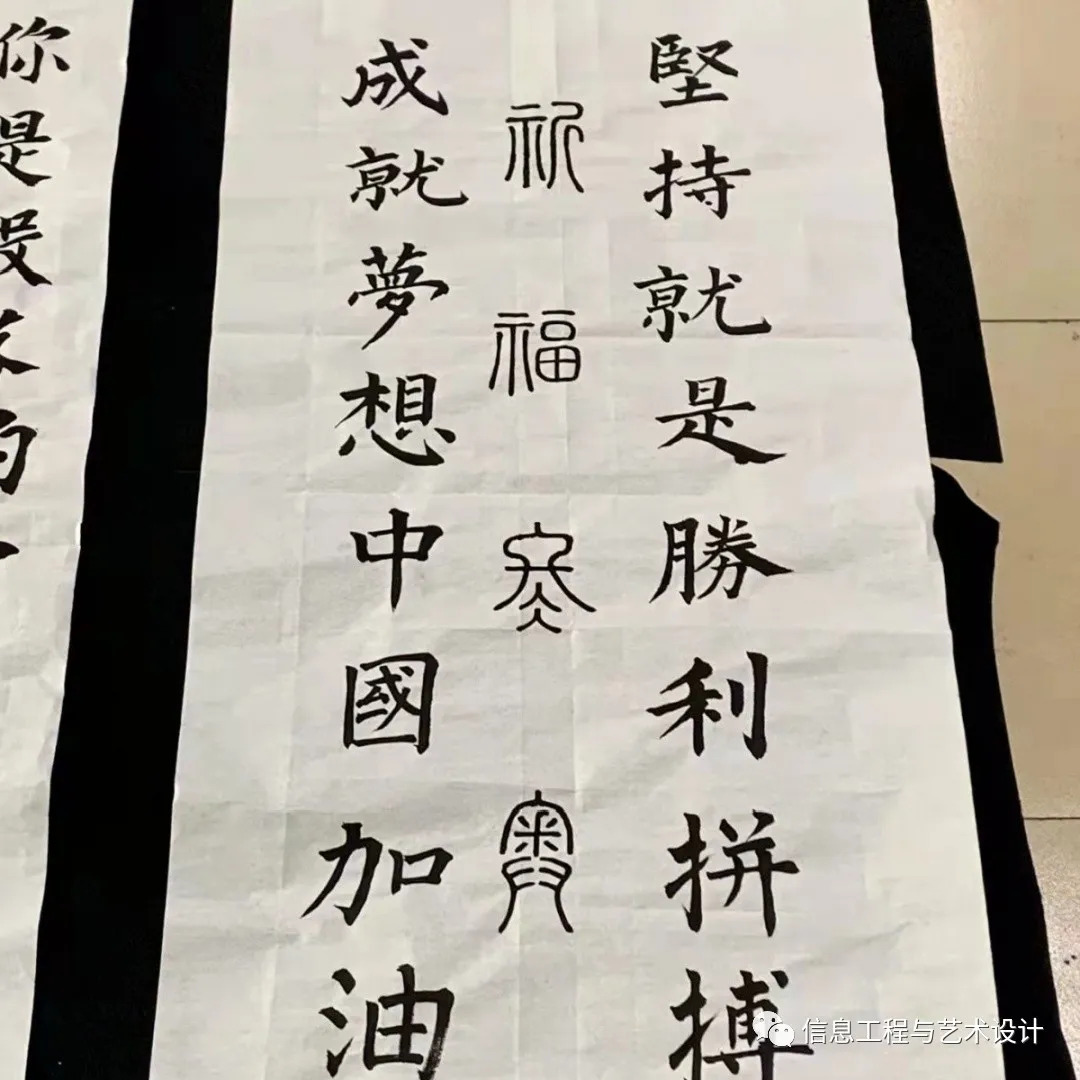 堅持就是勝利拼搏
祈福冬奧
成就夢想中國加油
你是
信息工程与艺术设计